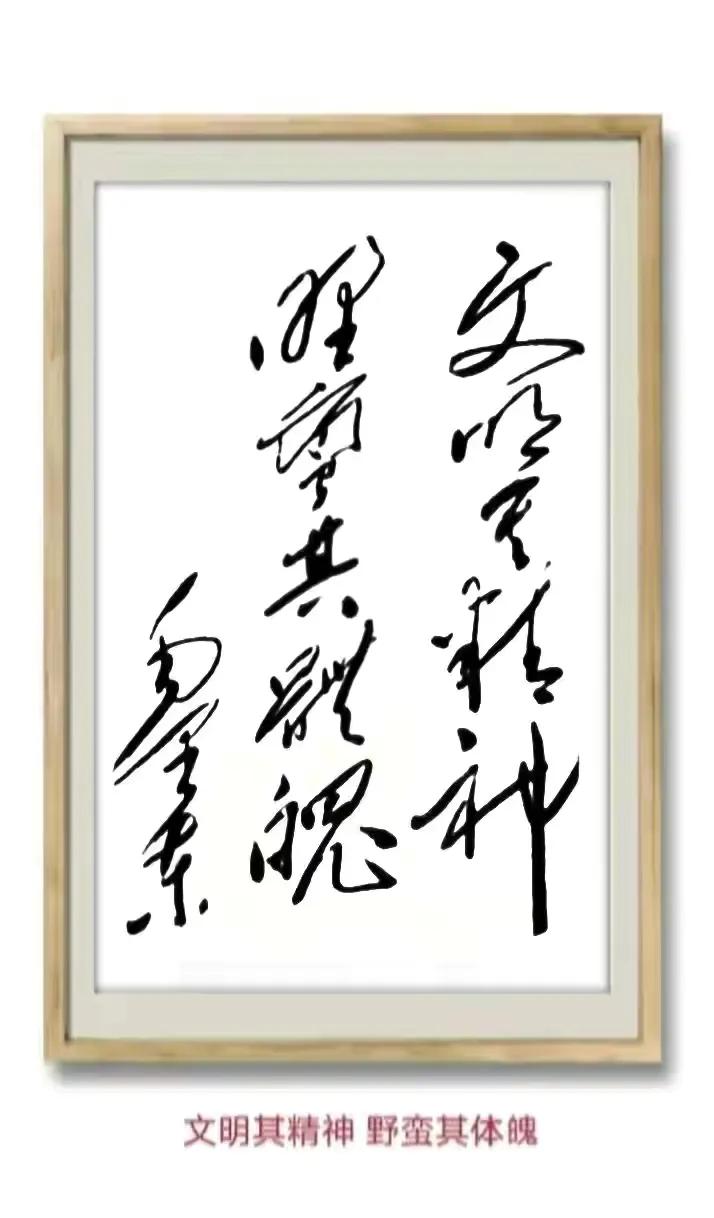 文明其精神
野蠻其體魄
毛泽东
文明其精神 野蛮其体魄